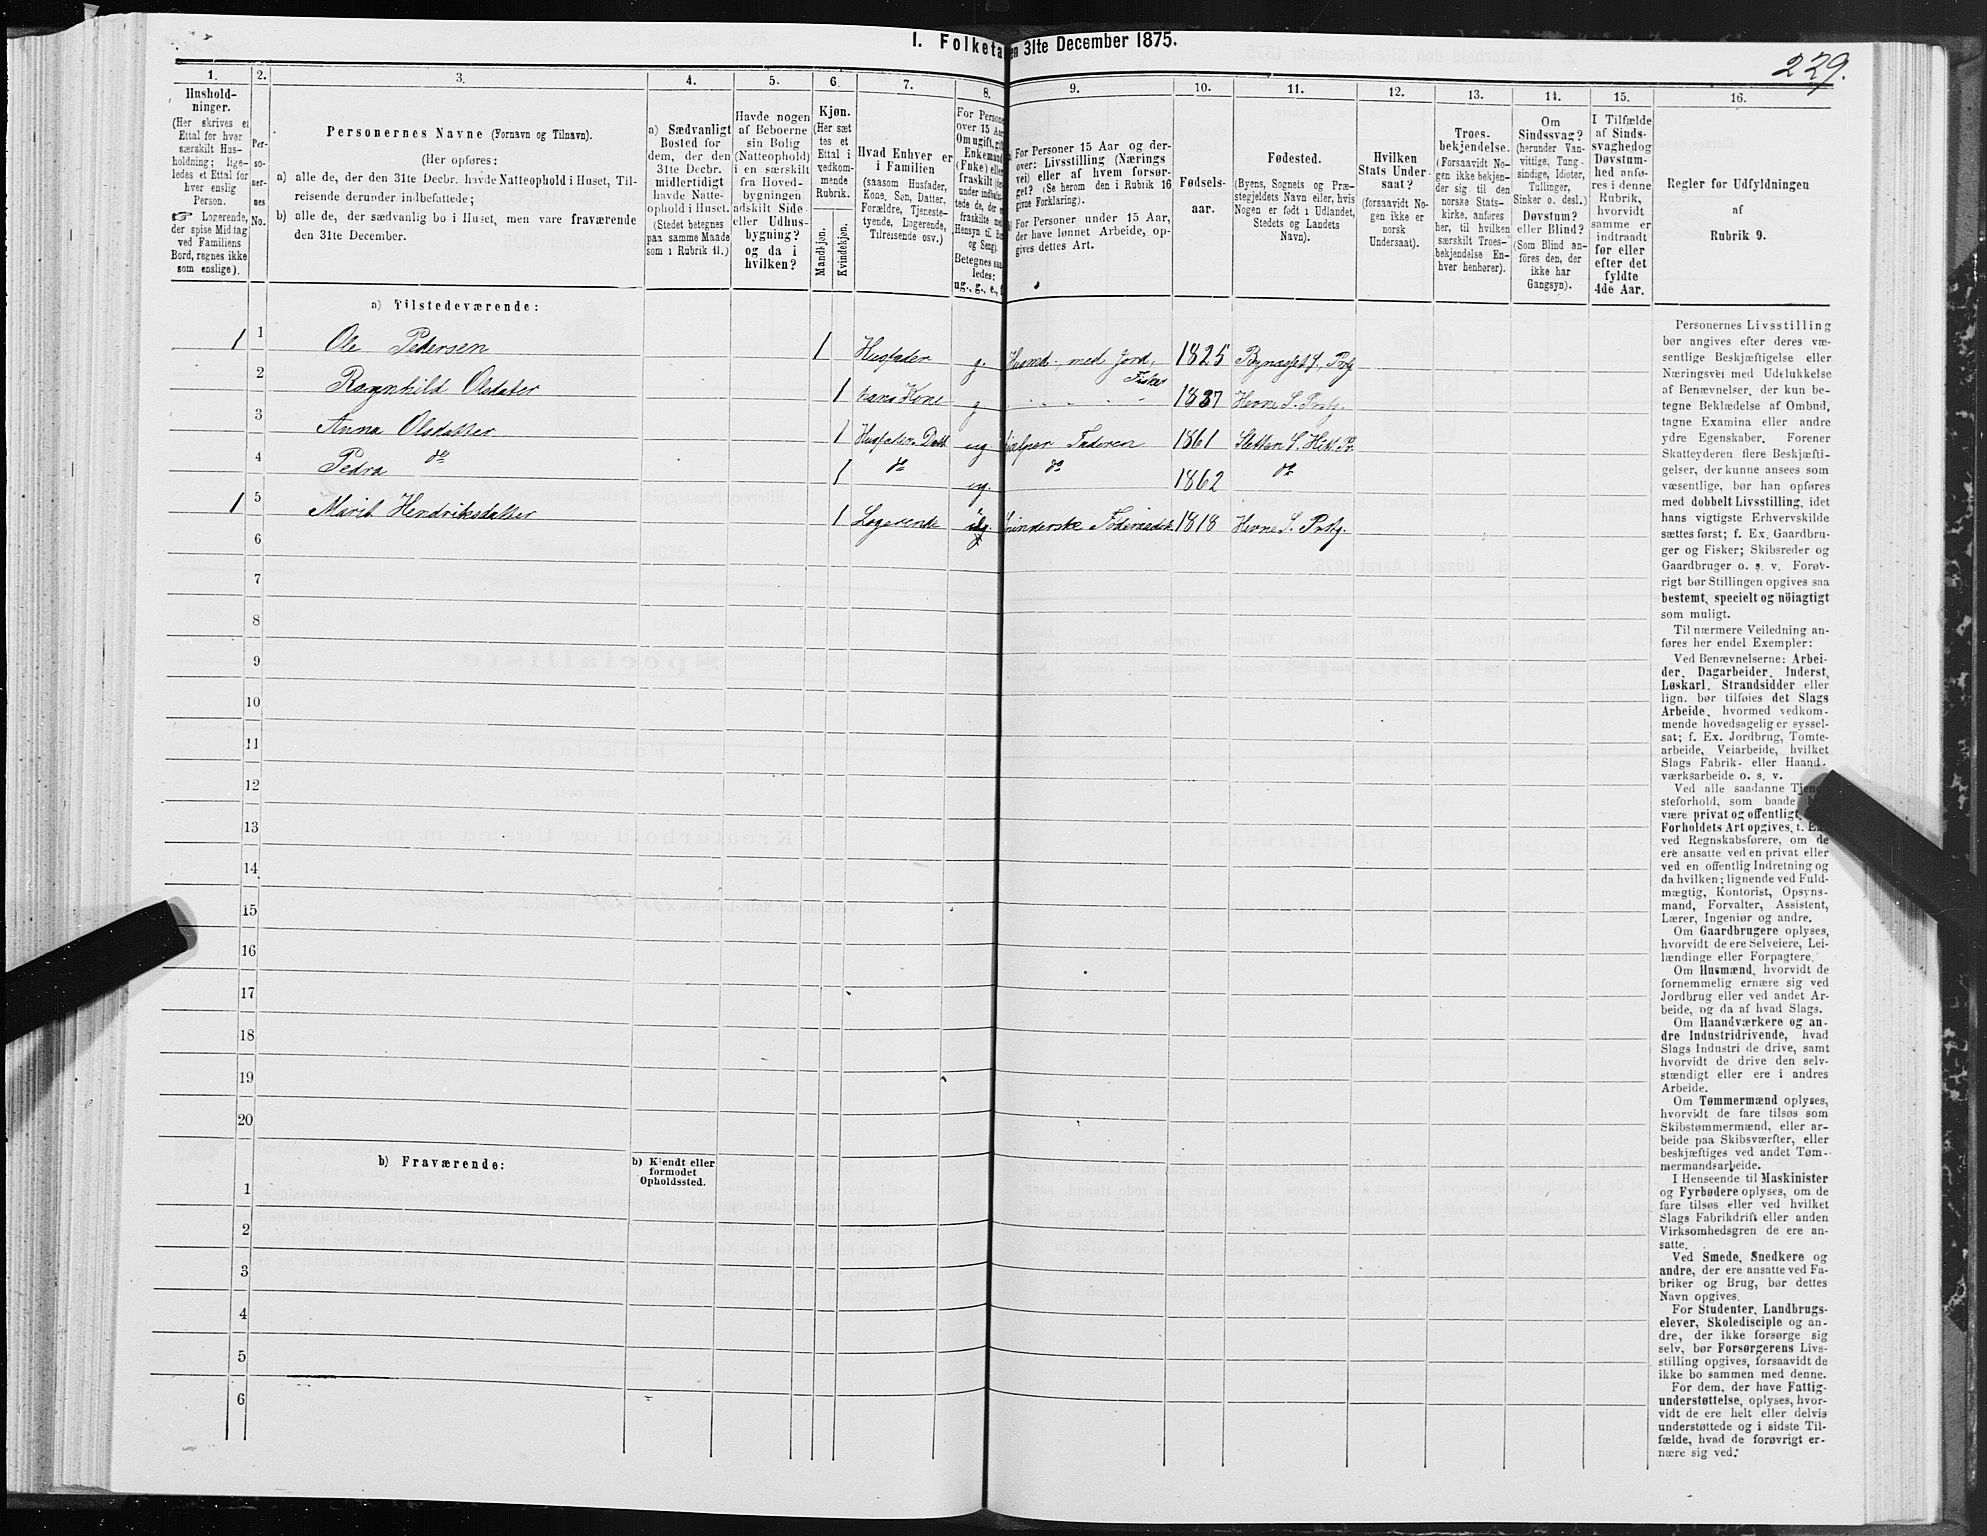 I. Folketa en 31te December 1875.
229.
1.
Hushold-
ninger.
(Her skrives et
Ettal for hver
særskilt Hus-
holdning; lige-
ledes et Ettal for
hver enslig
Person.
Logerende,
der spise Middag
ved Familiens
Bord, regnes ikke
som enslige).
2.
Per-
so-
ner-
nes
No.
3.
Personernes Navne (Fornavn og Tilnavn).
(Her opføres:
a) alle de, der den 31te Decbr. havde Natteophold i Huset, Til-
reisende derunder indbefattede;
b) alle de, der sædvanlig bo i Huset, men vare fraværende
den 31te December.
4.
a) Sædvanligt
Bosted for
dem, der den
31te Decbr.
midlertidigt
havde Natte-
ophold i Huset.
(Stedet betegnes
paa samme Maade
som i Rubrik 11.)
5.
Havde nogen
af Beboerne
sin Bolig
(Natteophold)
i en særskilt
fra Hoved-
bygningen
adskilt Side-
eller Udhus-
bygning?
og da i
hvilken?
6.
Kjøn.
(Her sæt
tes et
Ettal i
vedkom-
mende
Rubrik.
Mandkjøn.
Kvindekjøn.
7.
Hvad Enhver er
i Familien
(saasom Husfader,
Kone, Søn, Datter,
Forældre, Tjeneste-
tyende, Logerende,
Tilreisende osv.)
8.
For Persone
over 15 Aar
Om ugift, gift
Enkemand
(Enke) elle
fraskilt
Betegnes saa
ledes:
ug., g., e., f
9.
For Personer 15 Aar og der-
over: Livsstilling (Nærings
vei) eller af hvem forsør-
get? (Se herom den i Rubrik 16
givne Forklaring).
For Personer under 15 Aar,
der have lønnet Arbeide, op-
gives dettes Art.
10.
Fødsels-
aar.
11.
Fødested.
(Byens, Sognets og Præ-
stegjeldets Navn eller, hvis
Nogen er født i Udlandet,
Stedets og Landets
Navn).
12.
Hvilken
Stats Under-
saat?
(forsaavidt No-
gen ikke er
norsk
Undersaat).
13.
Troes-
bekjendelse.
(Forsaavidt No-
gen ikke bekjen-
der sig til den
norske Stats-
kirke, anføres
her, til hvilken
særskilt Troes-
bekjendelse En-
hver henhører).
14.
Om
Sindssvag?
(herunder Van-
vittige, Tung-
sindige, Idioter,
Tullinger,
Sinker o. desl.)
Døvstum?
eller Blind?
(Som Blind an-
føres den, der
ikke har
Gangsyn).
15.
I Tilfælde
af Sinds-
svaghed og
Døvstum-
hed anfø-
res i denne
Rubrik,
hvorvidt
samme er
indtraadt
før eller
efter det
fyldte
4de Aar.
16.
Regler for Udfyldningen
af
Rubrik 9.
a) Tilstedeværende:
1 1 Ole Pedersen 1 Husfader g. Husmd. med Jord. 1825 Bynæsset
Fisker
2 Ragnhild Olsdater 1 hans Kone g 1837 Hevne S. Prstg.
3 Anna Olsdatter 1 Husfaders Datt ug hjelper Faderen 1861
4 Pedra do 1 do ug. do 1862 do
1 5 Marit Hendriksdatter 1 Logerende 1818 Hevne S. Prstg.
6
7
8
9
10
11
12
13
14
15
16
17
18
19
20
b) Fraværende:
b) Kjendt eller
formodet
Opholdssted.
1
2
3
4
5
6
Personernes Livsstilling
bør angives efter deres væ-
sentlige Beskjæftigelse eller
Næringsvei med Udelukkelse
af Benævnelser, der kun be-
tegne Beklædelse af Ombud,
tagne Examina eller andre
ydre Egenskaber. Forener
Skatteyderen flere Beskjæfti-
gelser, der kunne ansees som
væsentlige, bør han opføres
med dobbelt Livsstilling, idet
hans vigtigste Erhvervskilde
sættes først; f. Ex. Gaardbru-
ger og Fisker; Skibsreder og
Gaardbruger o. s. v. Forøv-
rigt bør Stillingen opgives saa
bestemt, specielt og nöiagtigt
som muligt.
Til nærmere Veiledning an-
føres her endel Exempler:
Ved Benævnelserne: Arbei-
der, Dagarbeider, Inderst,
Løskarl, Strandsidder eller
lign. bør tilføies det Slags
Arbeide, hvormed vedkom-
mende hovedsagelig er syssel-
sat; f. Ex. Jordbrug, Tomte-
arbeide, Veiarbeide, hvilket
Slags Fabrik- eller Haand-
værksarbeide o. s. v.
Ved alle saadanne Tjene
steforhold, som baade
være privat og offentligt,
Forholdets Art opgives, f. Ex
ved Regnskabsførere, om de
ere ansatte ved en privat eller
ved en offentlig Indretning og
da hvilken; lignende ved Fuld-
mægtig, Kontorist, Opsyns-
mand, Forvalter, Assistent,
Lærer, Ingeniør og andre.
Om Gaardbrugere oplyses,
hvorvidt de ere Selveiere, Lei-
lændinge eller Forpagtere.
Om Husmænd, hvorvidt de
fornemmelig ernære sig ved
Jordbrug eller ved andet Ar-
beide, og da af hvad Slags.
Om Haandværkere og an-
dre Industridrivende, hvad
Slags Industri de drive, samt
hvorvidt de drive den selv-
stændigt eller ere i andres
Arbeide.
Om Tømmermænd oplyses,
hvorvidt de fare tilsøs som
Skibstømmermænd, eller ar-
beide paa Skibsværfter, eller
beskjæftiges ved andet Tøm-
mermandsarbeide.
I Henseende til Maskinister
og Fyrbødere oplyses, om de
fare tilsøs eller ved hvilket
Slags Fabrikdrift eller anden
Virksomhedsgren de ere an-
satte.
Ved Smede, Snedkere og
andre, der ere ansatte ved Fa-
briker og Brug, bør dettes
Navn opgives.
For Studenter, Landbrugs-
elever, Skoledisciple og an-
dre, der ikke forsørge sig
selv, bør Forsørgerens Livs-
stilling opgives, forsaavidt de
ikke bo sammen med denne.
For dem, der have Fattig-
understøttelse, oplyses, hvor-
vidt de ere helt eller delvis
understøttede og i sidste Til-
fælde, hvad de forøvrigt er-
nære sig ved.